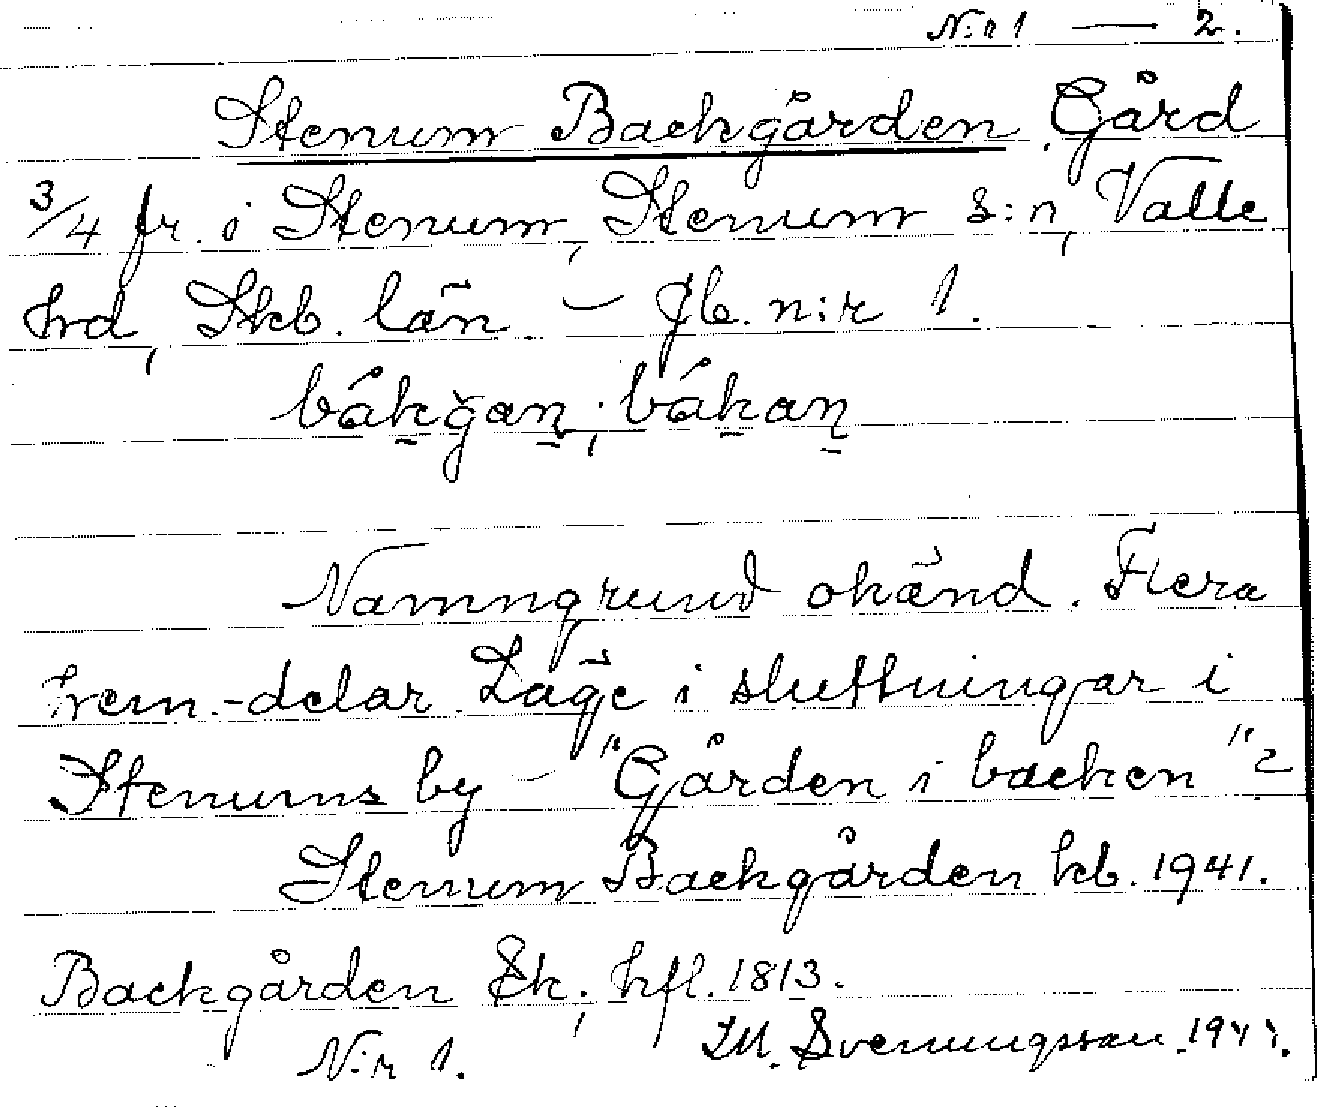 N:r 1 — 2.
Stenum Backgården. Gård
3/4 fr. i Stenum, Stenum s:n, Valle
hrd, Skb. län – Jb. n:r 1.
Namngrund okänd. Flera
hem.-delar. Läge i sluttningar i
Stenums by – "Gården i backen"
Stenum Backgården kb. 1941.
Backgården Ek; hfl. 1813.
N:r 1. Svenungsson